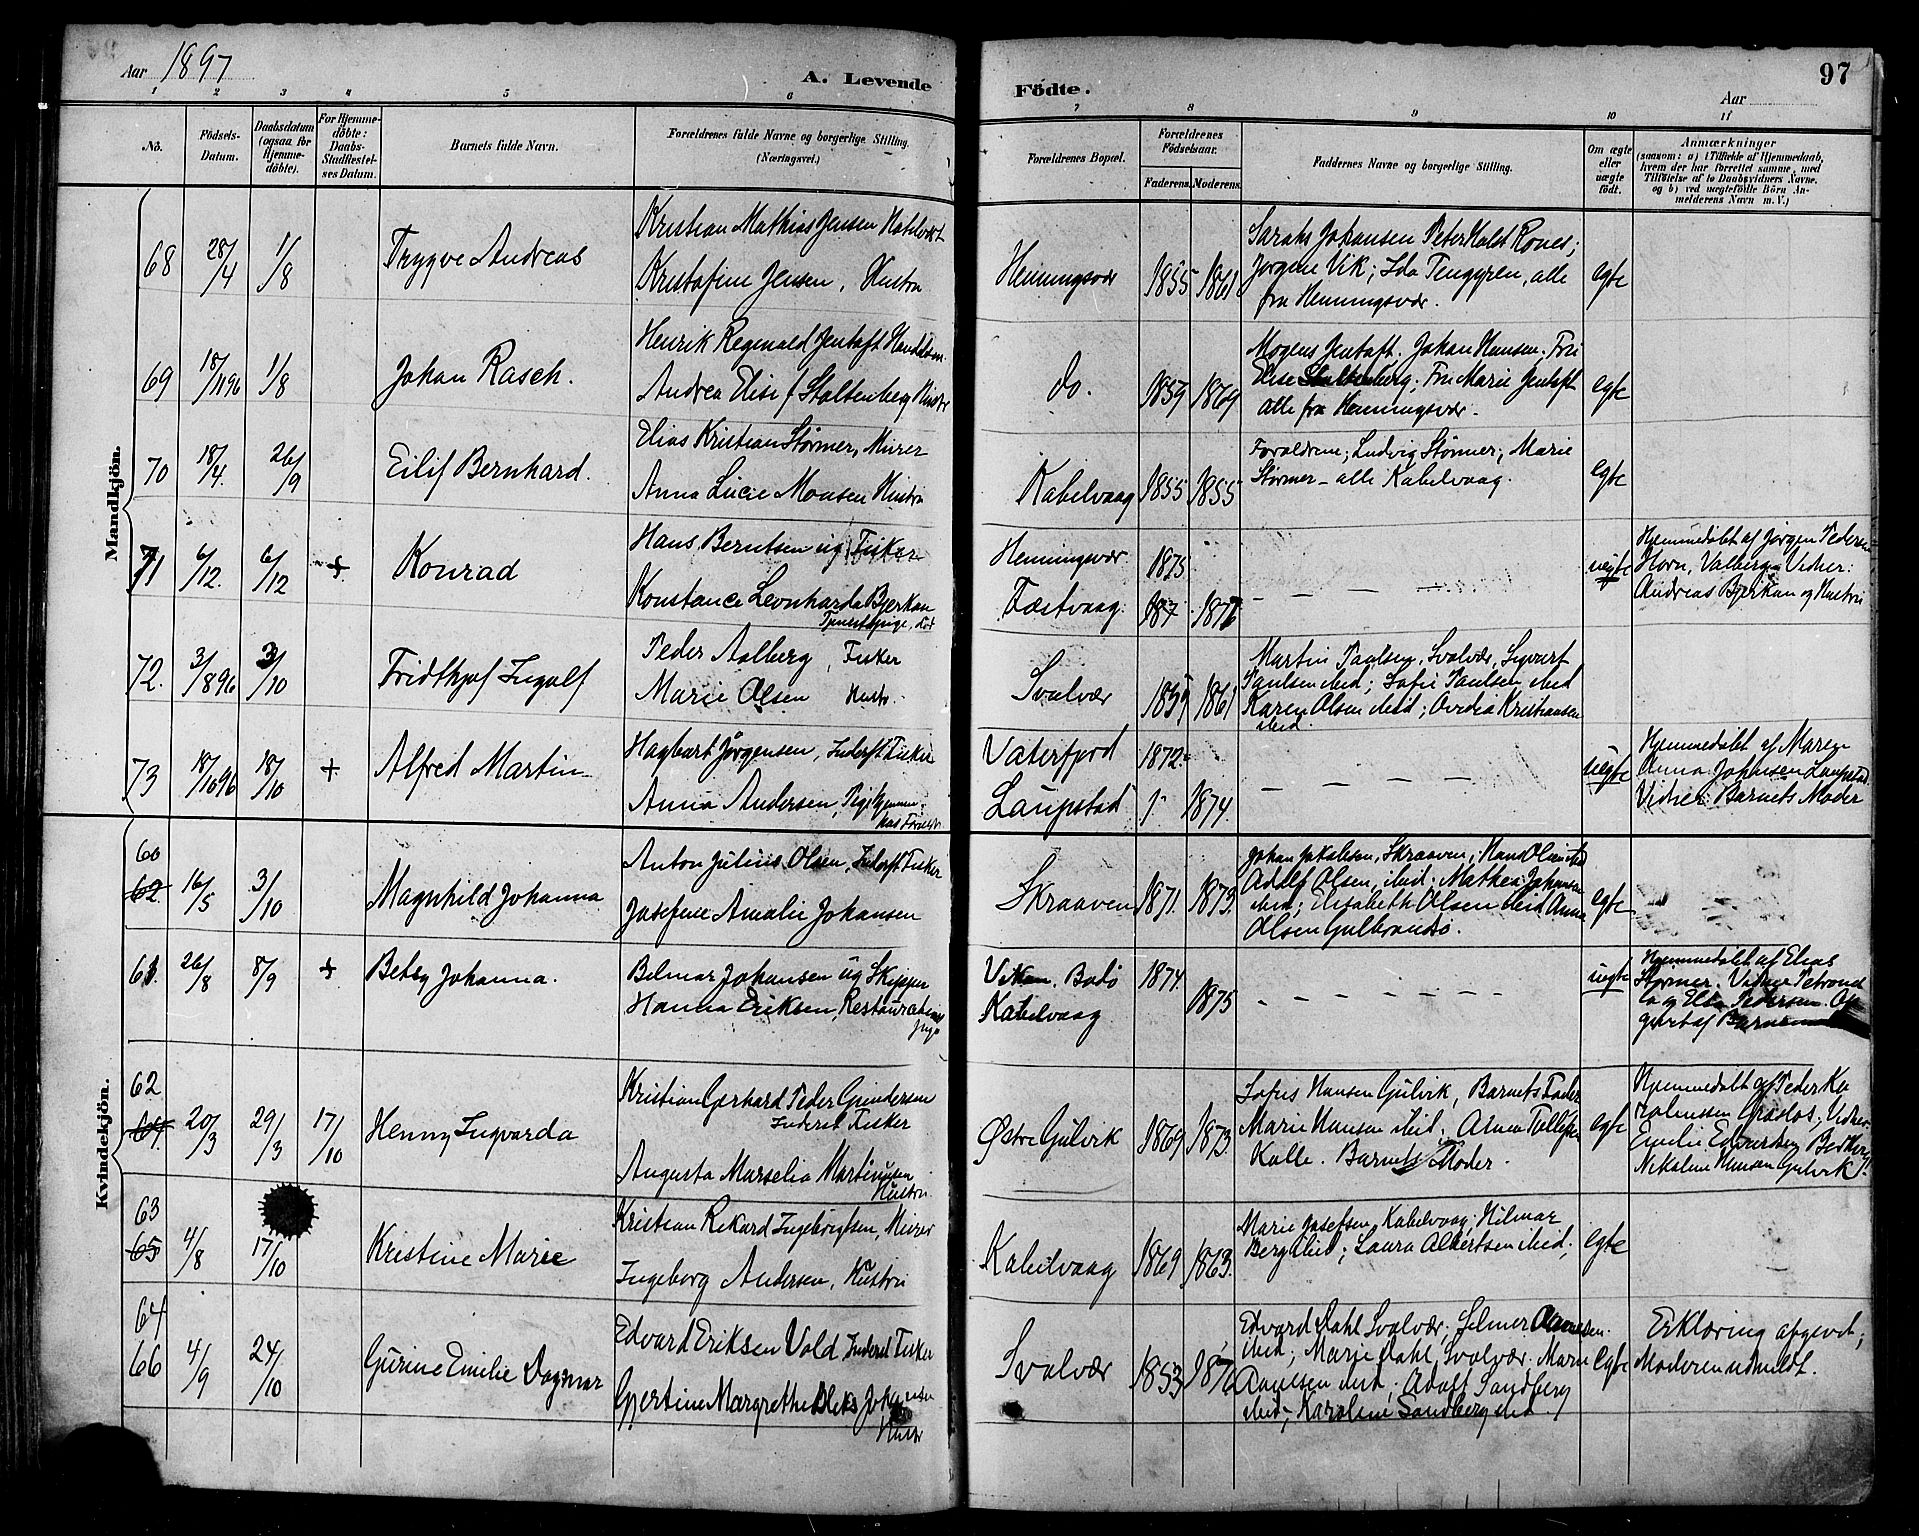 Aar 1897
A. Levende
Födte.
97
Aar
1 2 3 4 5 6 7 8 9 10 11
No.
Födsels-
Datum.
Daabsdatum
(ogsaa for
Hjemme-
döbte).
For Hjemme-
döbte:
Daabs-
Stadfæstel-
ses Datum.
Barnets fulde Navn.
Forældrenes fulde Navne og borgerlige Stilling.
(Næringsvei.)
Forældrenes Bopæl.
Forældrenes
Födselsaar.
Faderens. Moderens.
Faddernes Navne og borgerlige Stilling.
Om ægte
eller
uægte
födt.
Anmærkninger
(saasom: a) i Tilfælde af Hjemmedaab,
hvem der har forrettet samme, med
Tilföielse af to Daabsvidners Navne,
og b) ved uægtefödte Börn An-
melderens Navn m. V.)
Mandkjön.
68 28/4 1/8 Trygve Andreas
Kristian Mathias Jensen
Kristofine Jensen, Hustru
Henningsvær 1855 1861
Sarah Johansen Peter Holst Rones;
Jørgine Vik; Ida Tengyren, alle
fra Henningsvær.
egte
69 18/11 96 1/8 Johan Rasch.
Henrik Reginald Jentoft
Andrea Elise f Stoltenberg Hustr
do. 1859 1869
Mogens Jentoft. Johan Hansen; Fru
Elise Stoltenberg; Fru Marie Jentoft
alle fra Henningsvær.
egte
70 18/4. 26/9 Eilif Bernhard.
Elias Kristian Størmer, Murer
Anna Lucie Monsen Hustru
Kabelvaag 1855 1855
Forældrene; Ludvig Størmer; Marie
Størmer - alle Kabelvaag.
egte
71 6/12. 6/12 + Konrad
Hans Berntsen ug Fisker
Konstance Leonharda Bjerkan
Henningsvær 1875
Festvaag. 187 1877
uegte
Hjemmedøbt af Jørgen Pedersen
Horn, Valberg. Vidner:
Andreas Bjerkan og Hustru
72. 3/8 96 3/10 Fridthjof Ingolf
Peder Aalberg, Fisker
Marie Olsen Hustr.
Svolvær 1859 1861
Martin Paulsen, Svolvær, Sigvart
Paulsen ibid; Sofie Paulsen ibid
Karen Olsen ibid; Ovidia Kristiansen
ibid.
73 18/10 96 18/10 + Alfred Martin
Hagbart Jørgensen, Inderst Fisker
Anna Andersen, Pige hjemme
hos Foreldr.
Vaterfjord 1872
Laupstad 1874.
uegte
Hjemmedøbt af Maren
Anna Johnsen Laupstad
Vidner: Barnets Moder
Kvindekjön.
60
62. 16/5 3/10 Magnhild Johanna
Anton Julius Olsen, Inderst Fisker
Josefine Amalie Johansen
Skraaven 1871. 1873.
Johan Jakobsen, Skraaven; Hans Olsen ibid
Adolf Olsen, ibid. Mathea Johansen
ibid; Elisabeth Olsen ibid Anna
Olsen Gulbrandsø.
egte
61. 26/8 8/9 + Betsy Johanna.
Bilmar Johansen ug Skipper
Hanna Eriksen, Restaurations
Viken. Bodø 1874.
Kabelvaag 1875
uegte
Hjemmedøbt af Elias
Størmer. Vidner Petronel
la og Elen Pedersen. Op
givet af
62
64. 20/3 29/3 17/10 Henny Ingvarda
Kristian Gerhard Peder Gundersen
Inderst Fisker
Augusta Marselia Martinusen
Hustru
Østre Gulvik 1869 1873.
Sofus Hansen Gulvik, Barnets Fader
Marie Hansen ibid. Anna Tollefsen
Kalle. Barnets Moder.
egte
Hjemmedøbt af Peder Ko
Vidner
Emilie Edvardsen
Nikoline Hansen Gulvik.
63
65 4/8 17/10 Kristine Marie
Kristian Rikard Ingebrigtsen, Murer
Ingeborg Andersen, Hustru
Kabelvaag 1869 1863.
Marie Josefsen, Kabelvaag; Hilmar
Berg ibid; Laura Albertsen ibid.
egte
64
66 4/9 24/10 Gurine Emilie Dagmar
Edvard Eriksen Vold Inderst Fisker
Gjertine Margrethe
Hustr
Svolvær 1853
Edvard Dahl Svolvær, Selmer
ibid; Marie Dahl Svolvær. Marie
Paulsen ibid; Adolf Sandberg
ibid; Karoline Sandberg ibid
egte
Erklæring afgivet;
Moderen udmeldt.